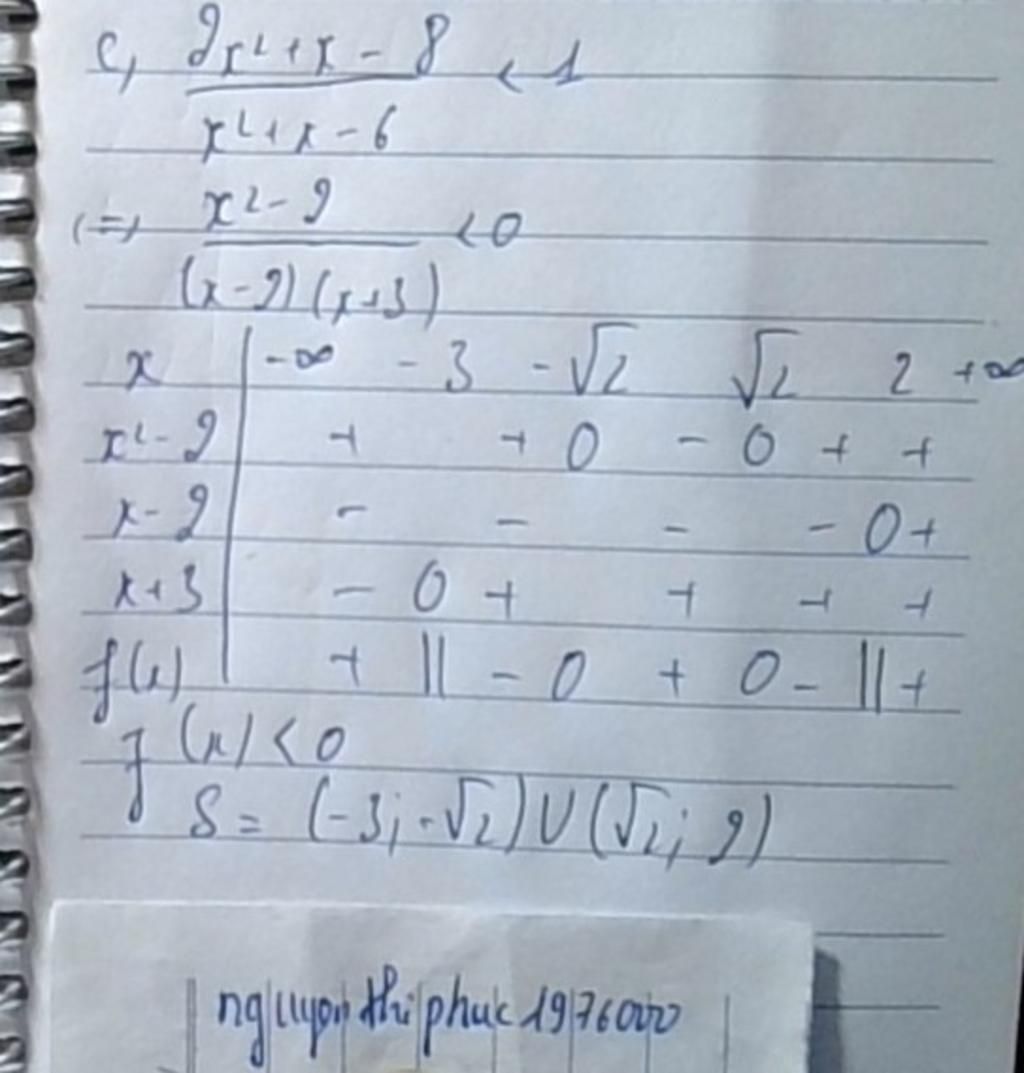 c, 2x² + x - 8 < 1
x² + x - 6
<=> x² - 2 < 0
(x - 2) (x + 3)
x -∞ -3 -√2 √2 2 +∞
x² - 2 + + 0 - 0 + +
x - 2 - - - - 0 +
x + 3 - 0 + + + +
f(x) + || - 0 + 0 - || +
f(x) < 0
S = (-3; -√2) U (√2; 2)
nguyen thi phuc 1976000